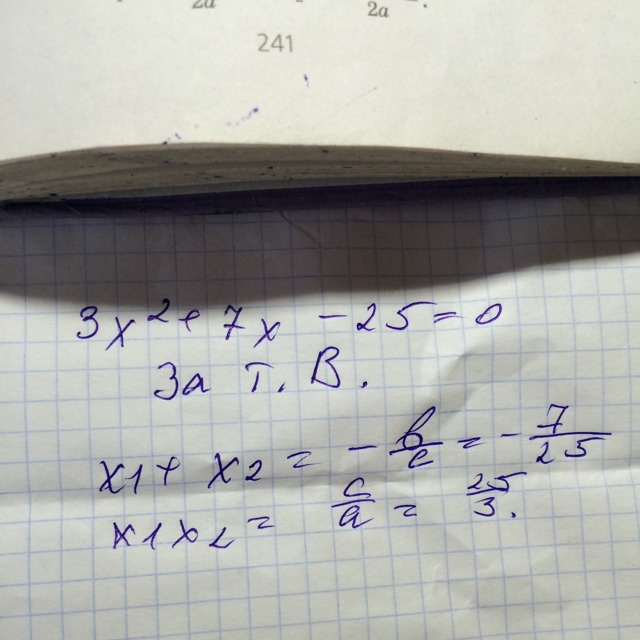 2a 2a .
241
3x² + 7x - 25 = 0
За Т. В.
x1 + x2 = - b/c = - 7/25
x1x2 = c/a = 25/3.